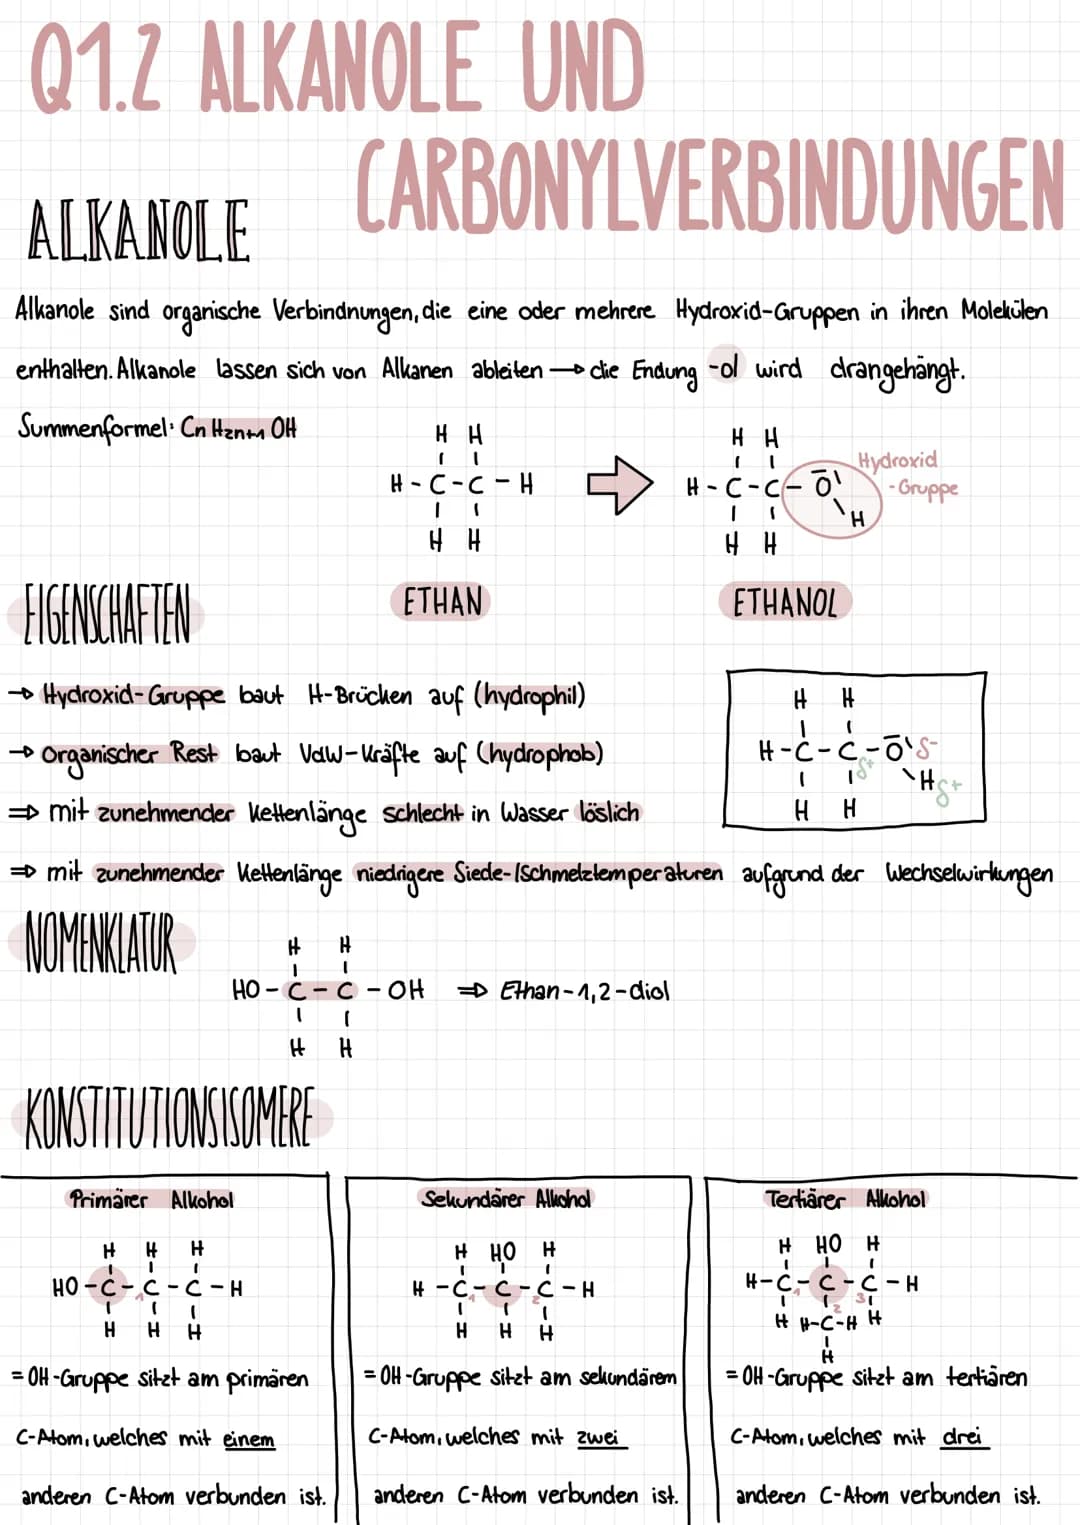 Q1.2 ALKANOLE UND
CARBONYLVERBINDUNGEN
ALKANOLE
Alkanole sind organische Verbindnungen, die eine oder mehrere Hydroxid-Gruppen in ihren Molekülen
enthalten. Alkanole lassen sich von Alkanen ableiten → die Endung -ol wird drangehängt.
Summenformel: CnH2n+1 OH
H H
H - C - C - H
H H
ETHAN
H H
H - C - C - O
H
H H
Hydroxid
- Gruppe
ETHANOL
EIGENSCHAFTEN
→ Hydroxid-Gruppe baut H-Brücken auf (hydrophil)
→ Organischer Rest baut VdW-Kräfte auf (hydrophob)
⇒ mit zunehmender Kettenlänge schlecht in Wasser löslich
⇒ mit zunehmender Kettenlänge niedrigere Siede-/Schmelztemperaturen aufgrund der Wechselwirkungen
H H
H - C - C - O δ-
δ+ H δ+
H H
NOMENKLATUR
H H
HO - C - C - OH ⇒ Ethan-1,2-diol
H H
KONSTITUTIONSISOMERE
Primärer Alkohol
H H H
HO - C - C - C - H
1
H H H
= OH-Gruppe sitzt am primären
C-Atom, welches mit einem
anderen C-Atom verbunden ist.
Sekundärer Alkohol
H HO H
H - C - C - C - H
1 2
H H H
= OH-Gruppe sitzt am sekundärem
C-Atom, welches mit zwei
anderen C-Atom verbunden ist.
Tertiärer Alkohol
H HO H
H - C - C - C - H
1 2 3
H H-C-H H
H
= OH-Gruppe sitzt am tertiären
C-Atom, welches mit drei
anderen C-Atom verbunden ist.